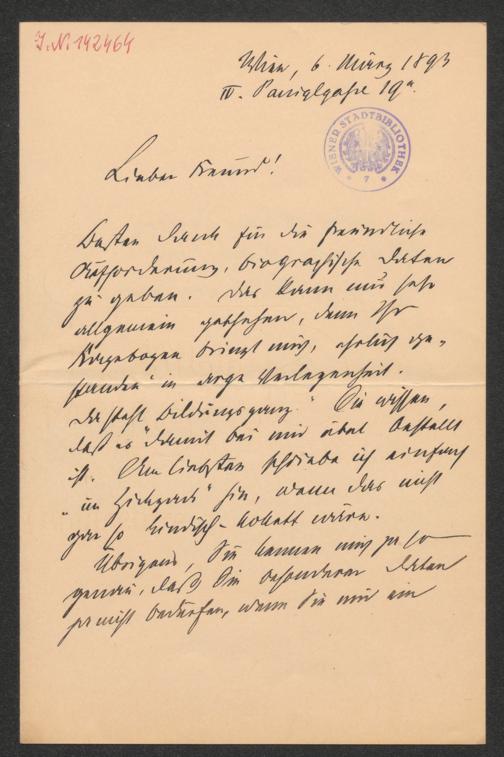 J.N. 142464
Wien, 6. März 1893
IV. Paniglgasse 19a.
WIENER STADTBIBLIOTHEK
7
Lieber Freund!
Besten Dank für die freundliche
Aufforderung, biographische Daten
zu geben. Das kann nur sehr
allgemein geschehen, denn Ihr
Fragebogen bringt mich, ehrlich ge-
standen in arge Verlegenheit.
Da steht „Bildungsgang." Sie wissen,
daß es damit bei mir übel bestellt
ist. Am liebsten schriebe ich einfach
„im Zickzack" hin, wenn das nicht
gar so kindisch-kokett wäre.
Übrigens, Sie kennen mich ja so
genau, daß Sie besonderer Daten
ja nicht bedürfen, wenn Sie mir ein